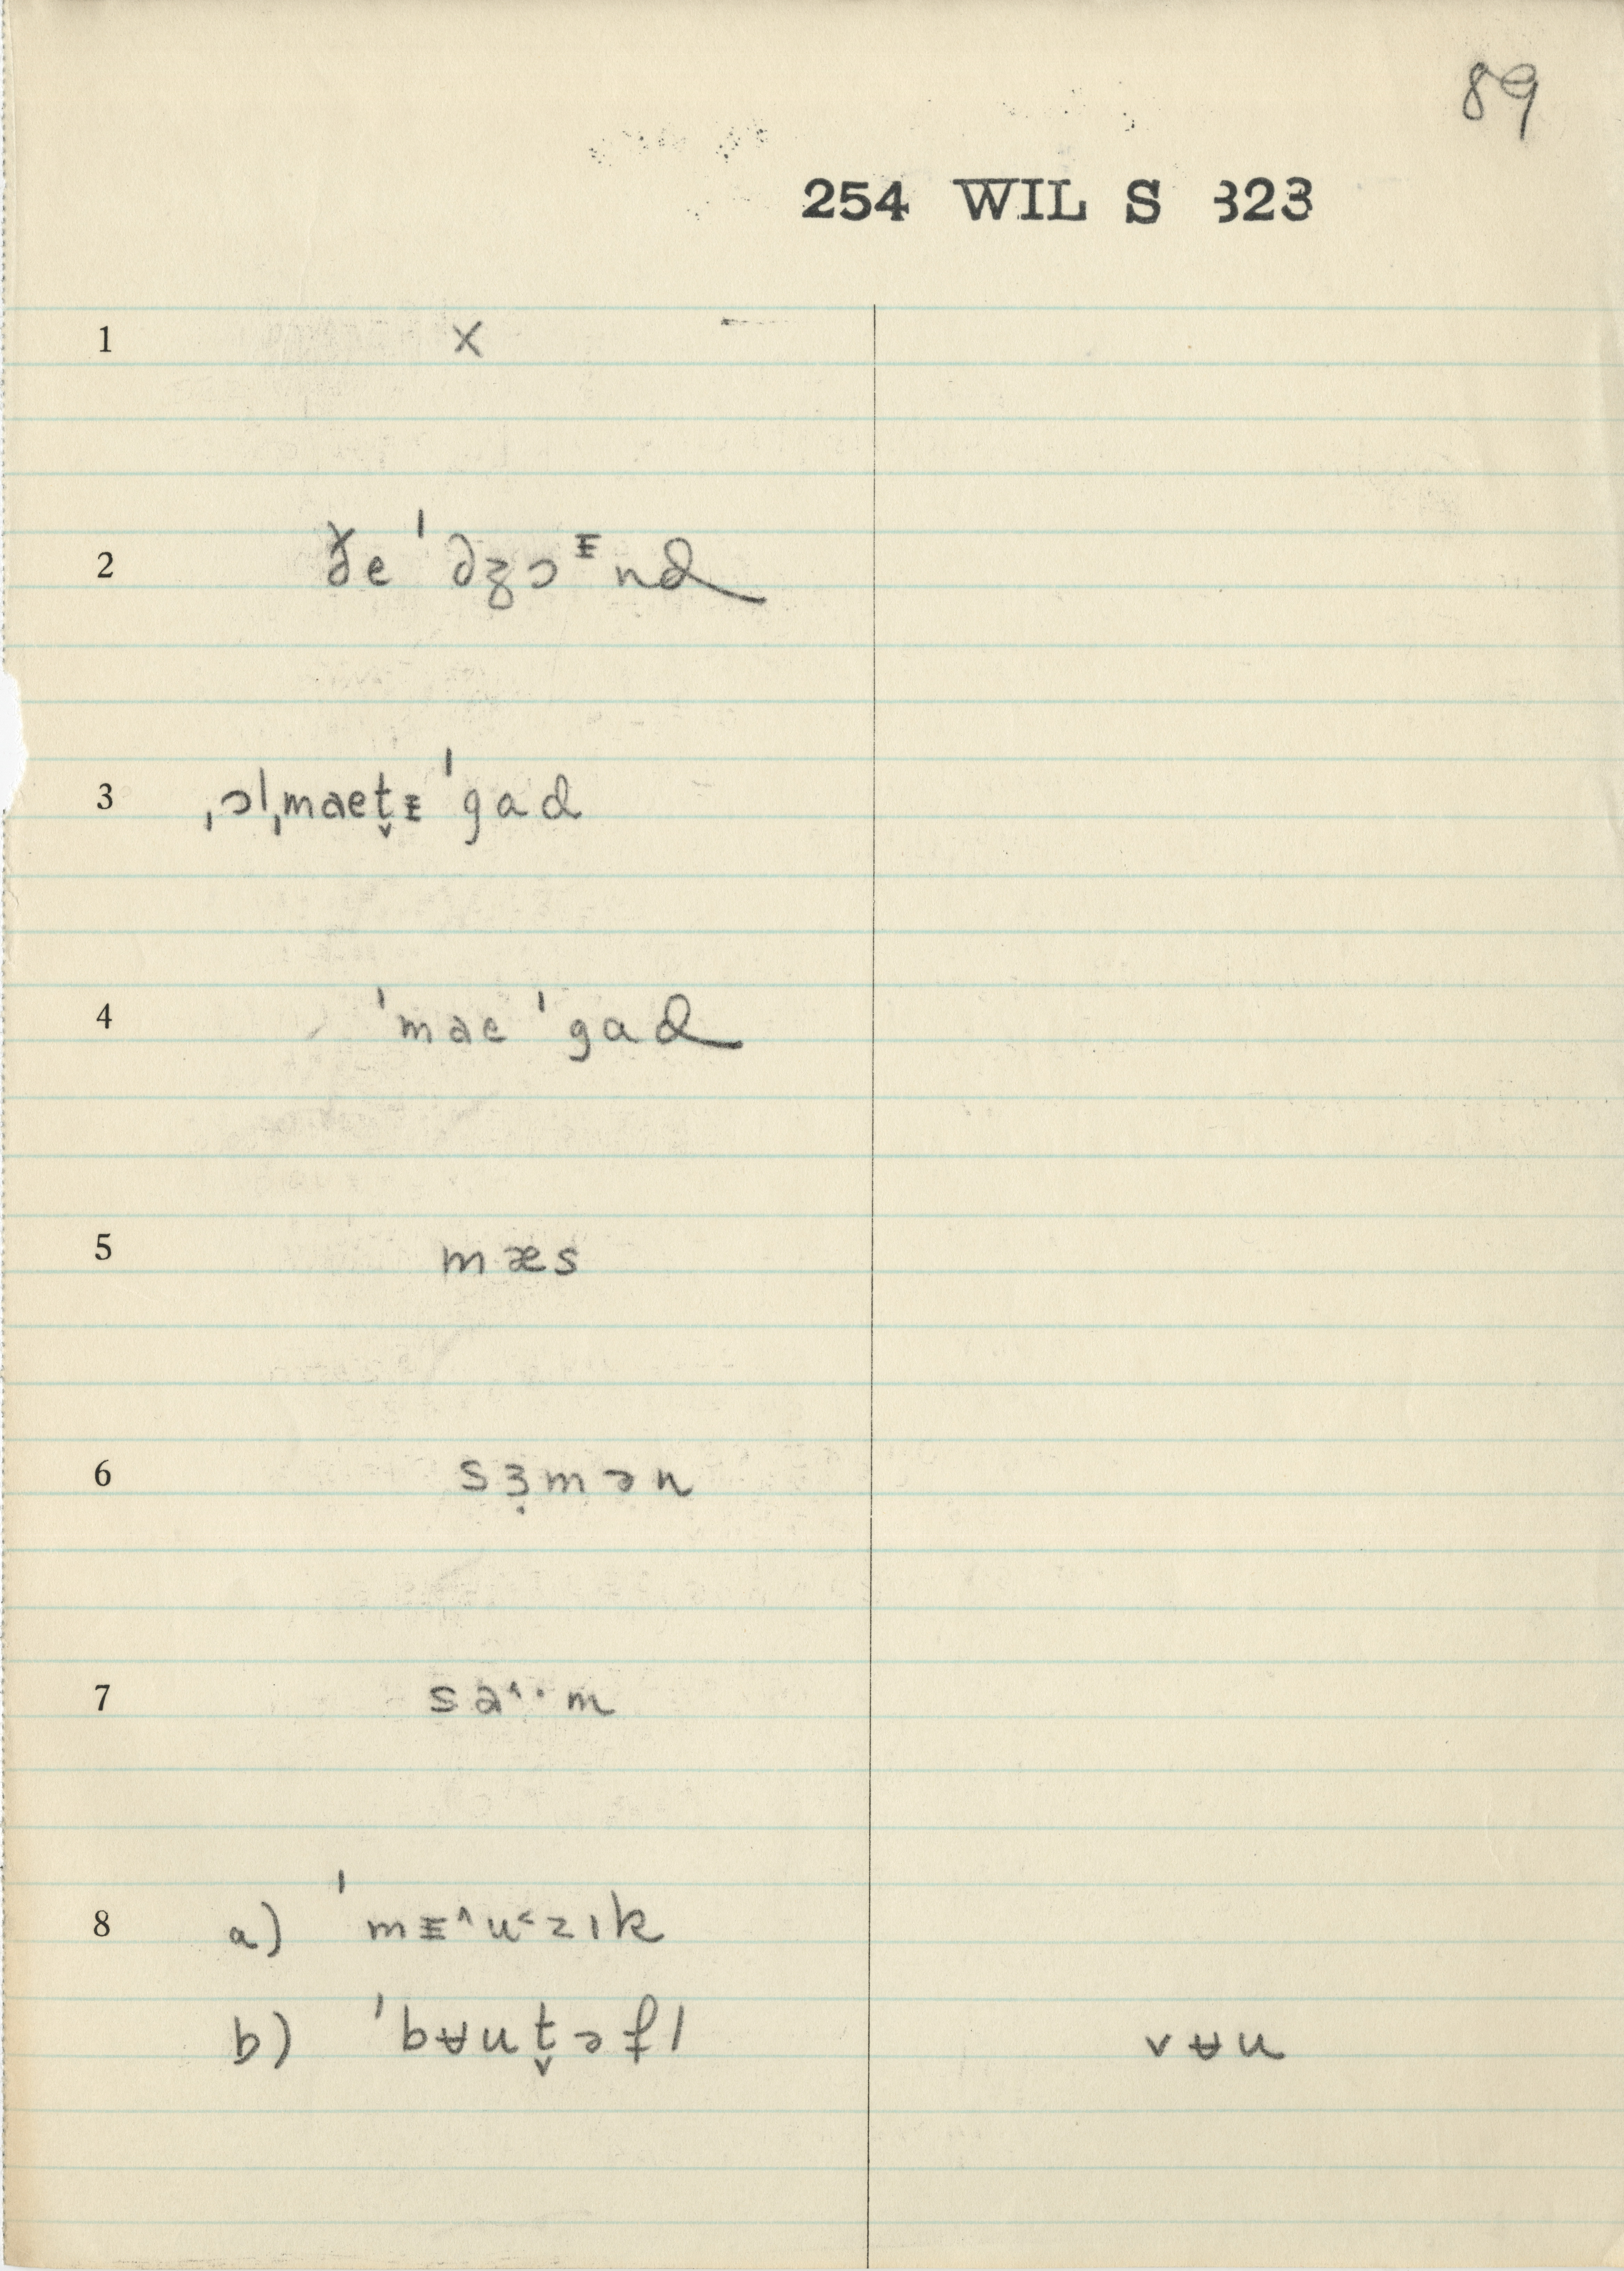 89
254 WIL S 323
1 x
2 ðe ˈdʒɔᵻnd
3 ˌɔlˌmaet̬ᵻ ˈgad
4 ˈmae ˈgad
5 mæs
6 sɜ̣mən
7 sa˄·m
8 a) ˈmᵻ˄u˂zɪk
b) ˈbʉut̬əfl vʉu